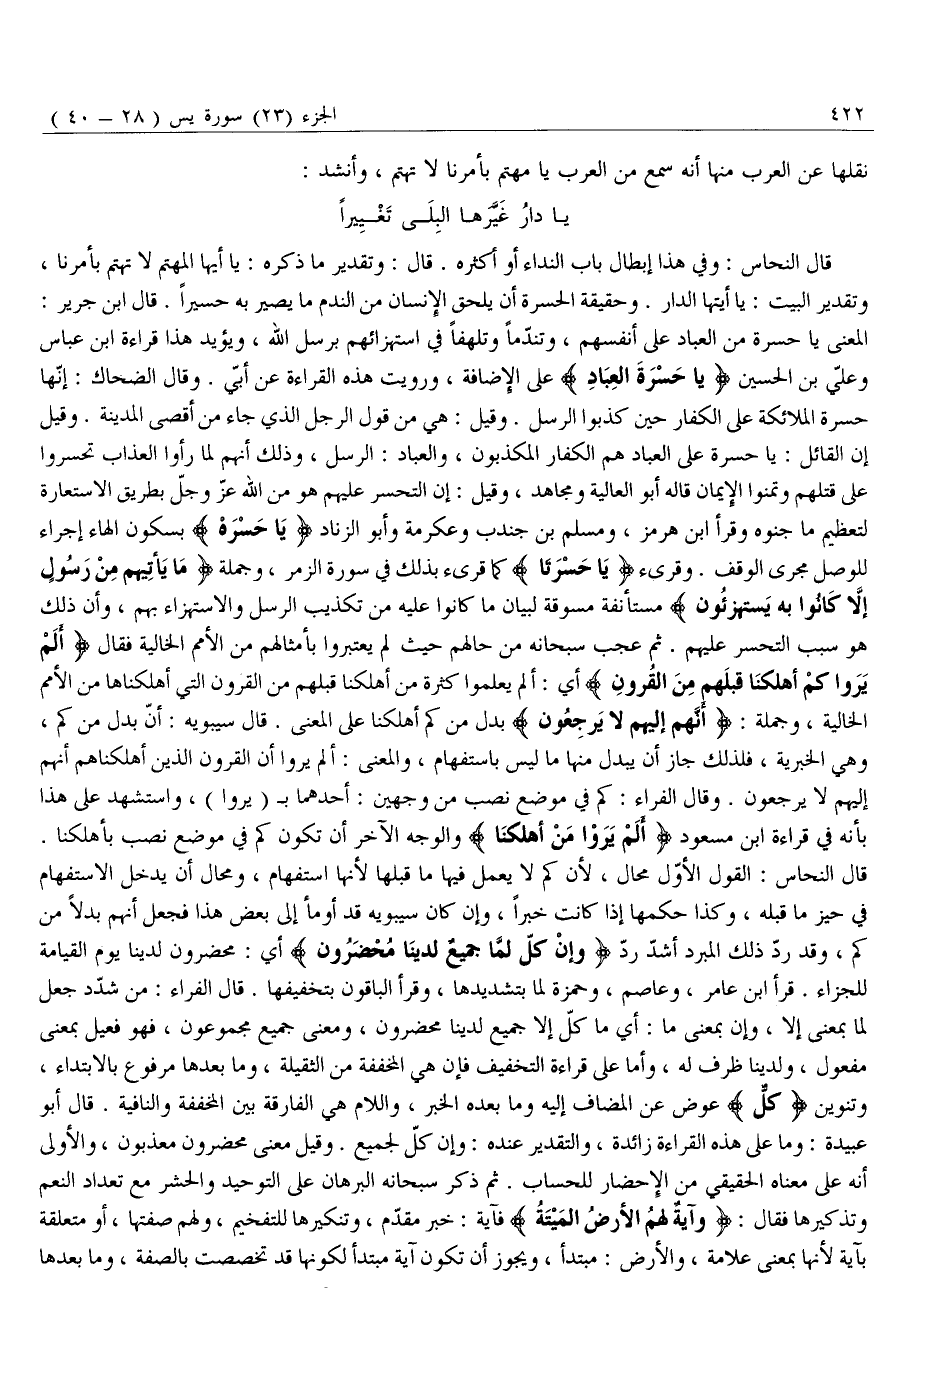 ٤٢٢
الجزء (٢٣) سورة يس ( ٢٨ – ٤٠ )
نقلها عن العرب منها أنه سمع من العرب يا مهتم بأمرنا لا تهتم ، وأنشد :
يـا دارُ غَيَّرَهـا البِلَـى تَغْـيِيراً
قال النحاس : وفي هذا إبطال باب النداء أو أكثره . قال : وتقدير ما ذكره : يا أيها المهتم لا تهتم بأمرنا ،
وتقدير البيت : يا أيتها الدار . وحقيقة الحسرة أن يلحق الإنسان من الندم ما يصير به حسيراً . قال ابن جرير :
المعنى يا حسرة من العباد على أنفسهم ، وتندّماً وتلهفاً في استهزائهم برسل الله ، ويؤيد هذا قراءة ابن عباس
وعليّ بن الحسين ﴿ يا حَسْرَةَ العِبَادِ ﴾ على الإضافة ، ورويت هذه القراءة عن أبيّ . وقال الضحاك : إنّها
حسرة الملائكة على الكفار حين كذبوا الرسل . وقيل : هي من قول الرجل الذي جاء من أقصى المدينة . وقيل
إن القائل : يا حسرة على العباد هم الكفار المكذبون ، والعباد : الرسل ، وذلك أنهم لما رأوا العذاب تحسروا
على قتلهم وتمنوا الإيمان قاله أبو العالية ومجاهد ، وقيل : إن التحسر عليهم هو من الله عزّ وجلّ بطريق الاستعارة
لتعظيم ما جنوه وقرأ ابن هرمز ، ومسلم بن جندب وعكرمة وأبو الزناد ﴿ يَا حَسْرَهْ ﴾ بسكون الهاء إجراء
للوصل مجرى الوقف . وقرىء ﴿ يَا حَسْرَتَا ﴾ كما قرىء بذلك في سورة الزمر ، وجملة ﴿ مَا يَأتِيهم مِنْ رَسُولٍ
إلَّا كَانُوا به يَستهزئُون ﴾ مستأنفة مسوقة لبيان ما كانوا عليه من تكذيب الرسل والاستهزاء بهم ، وأن ذلك
هو سبب التحسر عليهم . ثم عجب سبحانه من حالهم حيث لم يعتبروا بأمثالهم من الأمم الخالية فقال ﴿ أَلَمْ
يَرَوا كمْ أهلكنَا قبلَهم مِنَ القُرونِ ﴾ أي : ألم يعلموا كثرة من أهلكنا قبلهم من القرون التي أهلكناها من الأمم
الخالية ، وجملة : ﴿ أَنَّهم إليهم لا يَرجِعُون ﴾ بدل من كم أهلكنا على المعنى . قال سيبويه : أنّ بدل من كم ،
وهي الخبرية ، فلذلك جاز أن يبدل منها ما ليس باستفهام ، والمعنى : ألم يروا أن القرون الذين أهلكناهم أنهم
إليهم لا يرجعون . وقال الفراء : كم في موضع نصب من وجهين : أحدهما بـ ( يروا ) ، واستشهد على هذا
بأنه في قراءة ابن مسعود ﴿ أَلَمْ يَرَوْا مَنْ أهلكنَا ﴾ والوجه الآخر أن تكون كم في موضع نصب بأهلكنا .
قال النحاس : القول الأوّل محال ، لأن كم لا يعمل فيها ما قبلها لأنها استفهام ، ومحال أن يدخل الاستفهام
في حيز ما قبله ، وكذا حكمها إذا كانت خبراً ، وإن كان سيبويه قد أومأ إلى بعض هذا فجعل أنهم بدلاً من
كم ، وقد ردّ ذلك المبرد أشدّ ردّ ﴿ وإنْ كلّ لمَّا جميعٌ لدينَا مُحْضَرُون ﴾ أي : محضرون لدينا يوم القيامة
للجزاء . قرأ ابن عامر ، وعاصم ، وحمزة لما بتشديدها ، وقرأ الباقون بتخفيفها . قال الفراء : من شدّد جعل
لما بمعنى إلا ، وإن بمعنى ما : أي ما كلّ إلا جميع لدينا محضرون ، ومعنى جميع مجموعون ، فهو فعيل بمعنى
مفعول ، ولدينا ظرف له ، وأما على قراءة التخفيف فإن هي المخففة من الثقيلة ، وما بعدها مرفوع بالابتداء ،
وتنوين ﴿ كلٌّ ﴾ عوض عن المضاف إليه وما بعده الخبر ، واللام هي الفارقة بين المخففة والنافية . قال أبو
عبيدة : وما على هذه القراءة زائدة ، والتقدير عنده : وإن كلّ لجميع . وقيل معنى محضرون معذبون ، والأولى
أنه على معناه الحقيقي من الإحضار للحساب . ثم ذكر سبحانه البرهان على التوحيد والحشر مع تعداد النعم
وتذكيرها فقال : ﴿ وآيةٌ لهمُ الأرضُ المَيْتَةُ ﴾ فآية : خبر مقدّم ، وتنكيرها للتفخيم ، ولهم صفتها ، أو متعلقة
بآية لأنها بمعنى علامة ، والأرض : مبتدأ ، ويجوز أن تكون آية مبتدأ لكونها قد تخصصت بالصفة ، وما بعدها